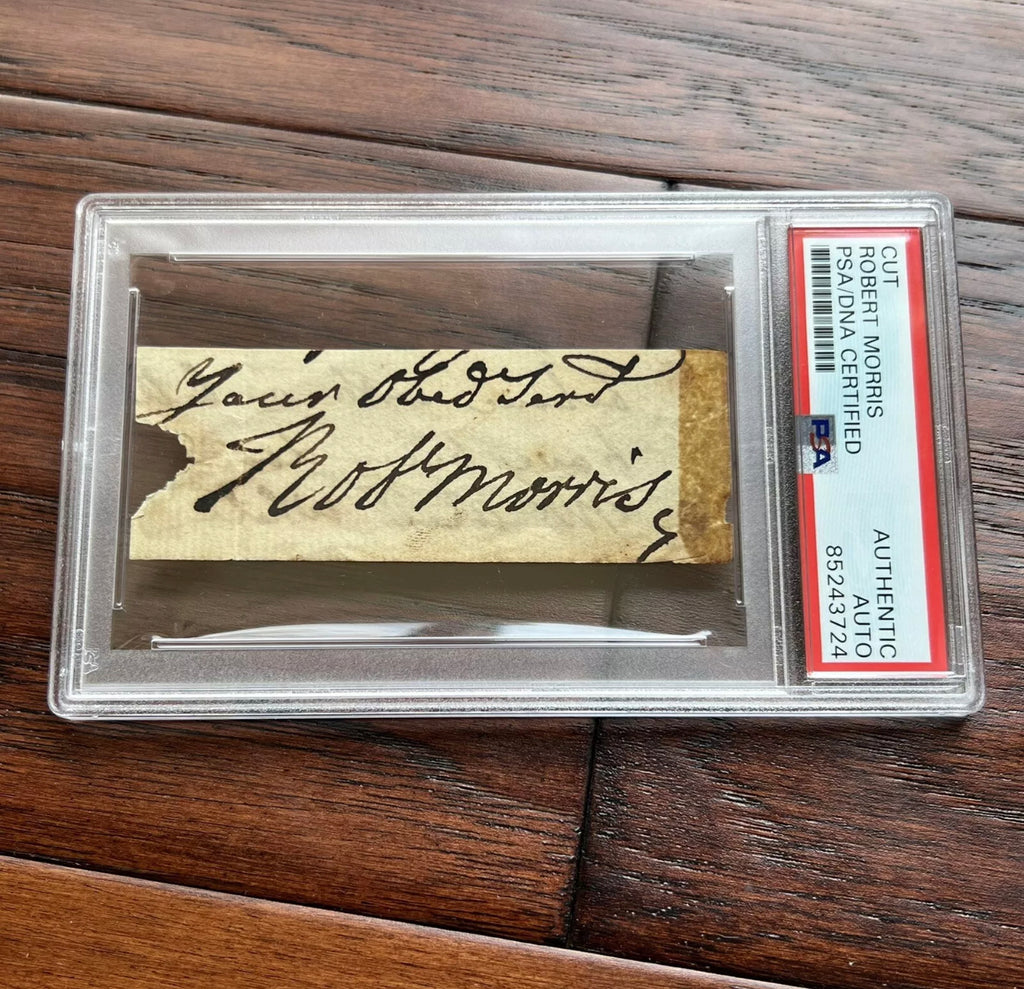 Your Obed Servt
Robt Morris
CUT
ROBERT MORRIS
PSA/DNA CERTIFIED
PSA
AUTHENTIC
AUTO
85243724